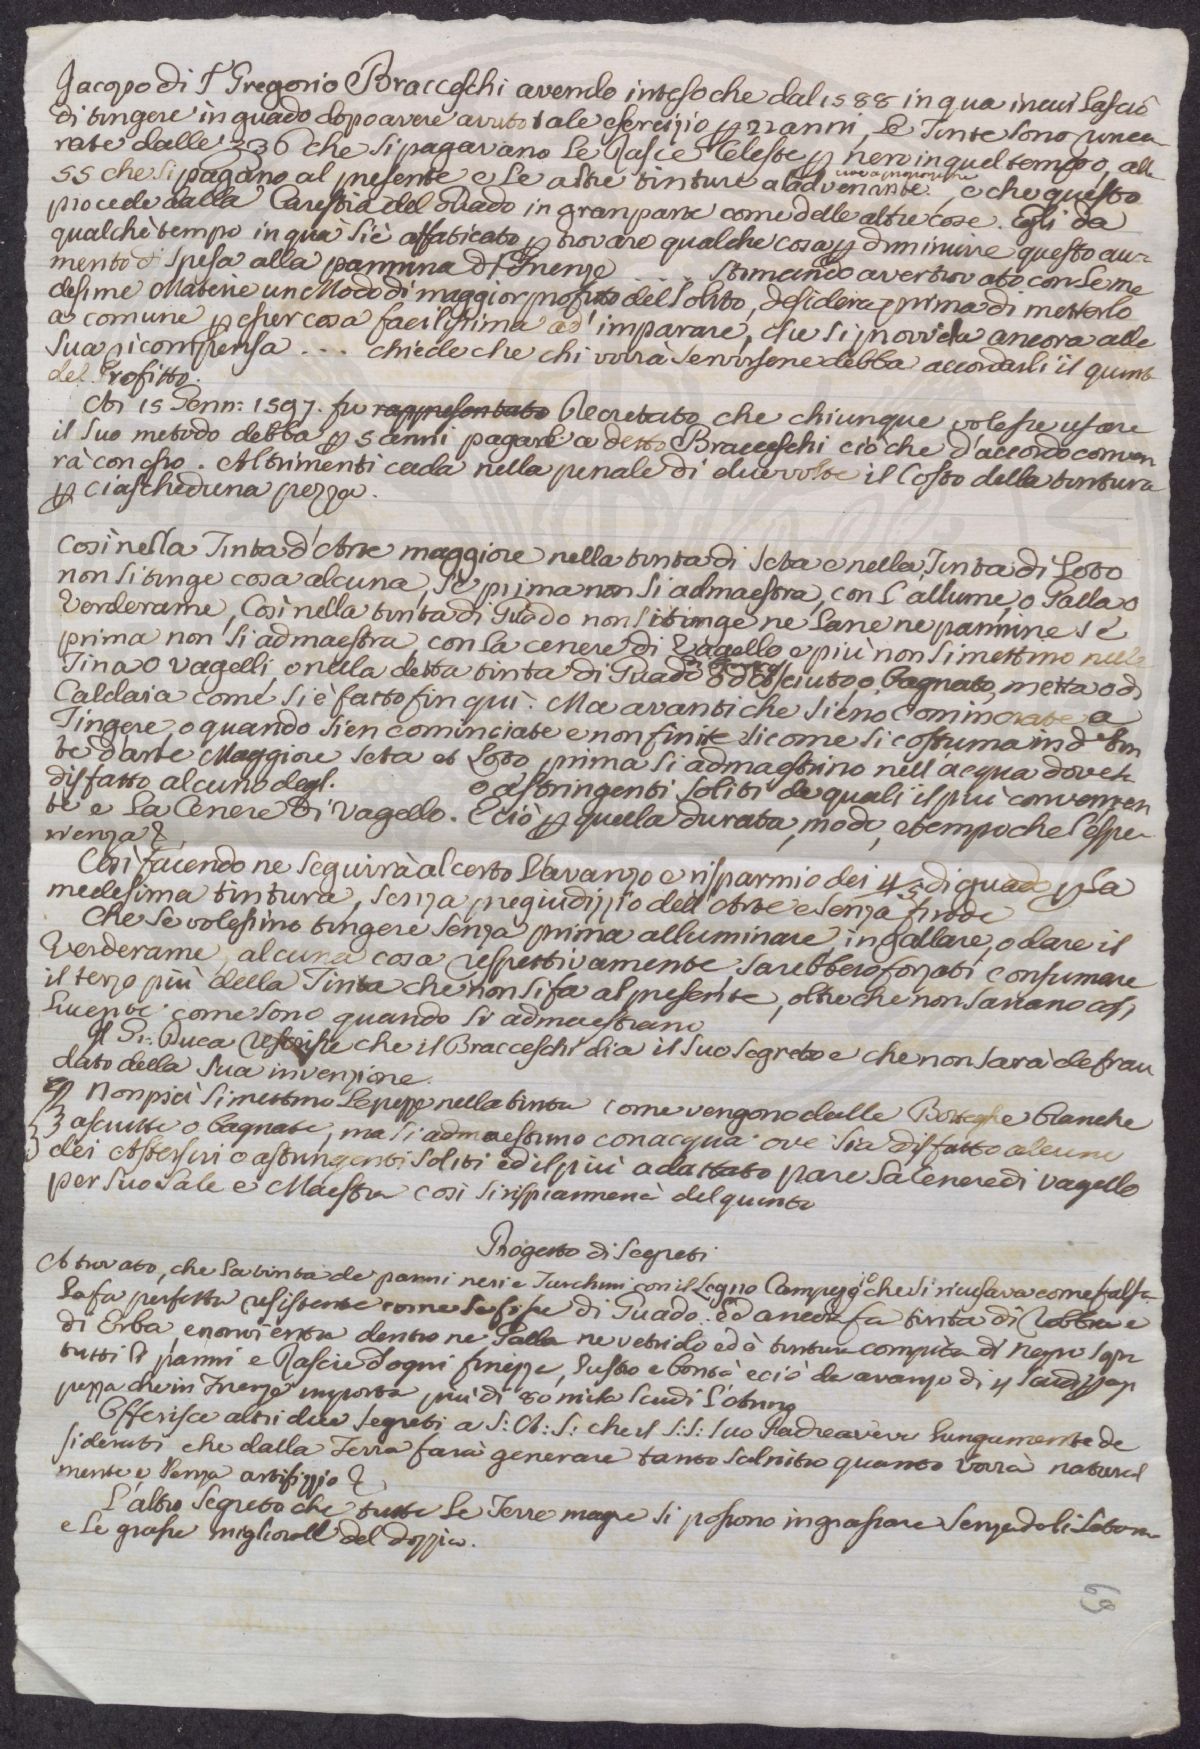 Jacopo di Sr Gregorio Bracceschi avendo inteso che dal 1588 in qua in cui lasciò
di tingere in guado dopo avere avuto tale esercizio p 22 anni, le Tinte sono rinca
rate dalle 36 che si pagavano le Rasce Celeste p nero in quel tempo, alle
55 che si pagano al presente e le altre tinture al advenante, e che questo
procede dalla Carestia del Guado in gran parte come delle altre cose. Egli da
qualche tempo in qua si è affaticato p trovare qualche cosa p diminuire questo au=
mento di spesa alla pannina di Firenze ... stimando aver trovato con le me
desime Materie un Modo di maggior profitto del solito, desidera prima di metterlo
a comune p esser cosa facilissima ad imparare, che si provveda ancora alla
sua ricompensa ... chiede che chi vorrà servirsene debba accordarli il quinto
del Profitto.
Ai 15 Genn: 1597. fu rappresentato Decretato che chiunque volesse usare
il suo metodo debba p 5 anni pagare a detto Bracceschi ciò che d'accordo conver
rà con esso. Altrimenti cada nella penale di due volte il Costo della tintura
p ciascheduna pezza.
Così nella Tinta d'Arte maggiore nella tinta di seta e nella Tinta di Loto
non si tinge cosa alcuna, se prima non si admaestra, con l'allume, o Galla o
Verderame, Così nella tinta di Guado non si tinge ne lane ne pannine se
prima non si admaestra con la cenere di Vagello e più non si mettino nelle
Tina o vagelli, o nella detta tinta di Guado o asciutto o bagnato, metta o di
Caldaia come si è fatto fin quì. Ma avanti che sieno cominciate a
Tingere, o quando sien cominciate e non finite sicome si costuma in d. tin
te d'arte Maggiore seta et Loto prima si admaestrino nell'acqua dove sia
disfatto alcuno degl. o astringenti soliti de quali il più convenien
te e la Cenere di Vagello. E ciò p quella durata, modo, e tempo che l'espe
rienza &
Così facendo ne seguirà al certo l'avanzo e risparmio dei 4/5 di guado p la
medesima tintura, senza pregiudizzio dell'Arte e senza frode
Che se volessino tingere senza prima alluminare, ingallare, o dare il
Verderame, alcuna cosa respettivamente, sarebbero forzati consumare
il terzo più della Tinta che non si fa al presente, oltre che non sariano così
lucente come sono quando si admaestrano
Il Gr: Duca rescrisse che il Bracceschi dia il suo segreto e che non sarà defrau
dato della sua invenzione.
Non più si mettino le pezze nella tinta come vengono dalle Botteghe bianche
asciutte o bagnate, ma si admaestrino con acqua ove sia disfatto alcuno
dei Astersivi o astringenti soliti ed il più adattato pare la Cenere di Vagello
per suo sale e Maestra così si rispiarmerà del quinto
Progetto di segreti
A trovato, che la tinta de panni neri e Turchini con il Legno Campeggio che si ricusava come falsa
la fa perfetta resistente come se fusse di Guado. Ed ancora fa tinta di Robbia e
di Erba, e non vi entra dentro ne Galla ne vetriolo ed è tintura compita di Negro sopra
tutti li panni e Rascie d'ogni finezza, lustro e bontà e ciò da avanzo di 4 scudi p
pezza che in Firenze importa più di 80 mila scudi l'anno
Offerisce altri due segreti a S: A: S: che il S: S: suo Padre aveva lungamente de
siderati che dalla Terra farà generare tanto salnitro quanto vorrà natural
mente e senza artifizzio &
L'altro segreto che tutte le Terre magre si possono ingrassare senza dolisetame
e le grasse migliorall del doppio.
69